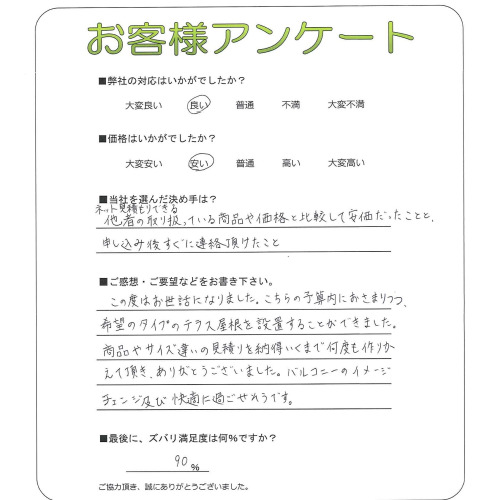 お客様アンケート
■弊社の対応はいかがでしたか？
大変良い 良い 普通 不満 大変不満
■価格はいかがでしたか？
大変安い 安い 普通 高い 大変高い
■当社を選んだ決め手は？
ネット見積もりできる
他者の取り扱っている商品や価格と比較して安価だったことと、
申し込み後すぐに連絡頂けたこと
■ご感想・ご要望などをお書き下さい。
この度はお世話になりました。こちらの予算内におさまりつつ、
希望のタイプのテラス屋根を設置することができました。
商品やサイズ違いの見積りを納得いくまで何度も作りか
えて頂き、ありがとうございました。バルコニーのイメージ
チェンジ及び快適に過ごせそうです。
■最後に、ズバリ満足度は何％ですか？
90 %
ご協力頂き、誠にありがとうございました。